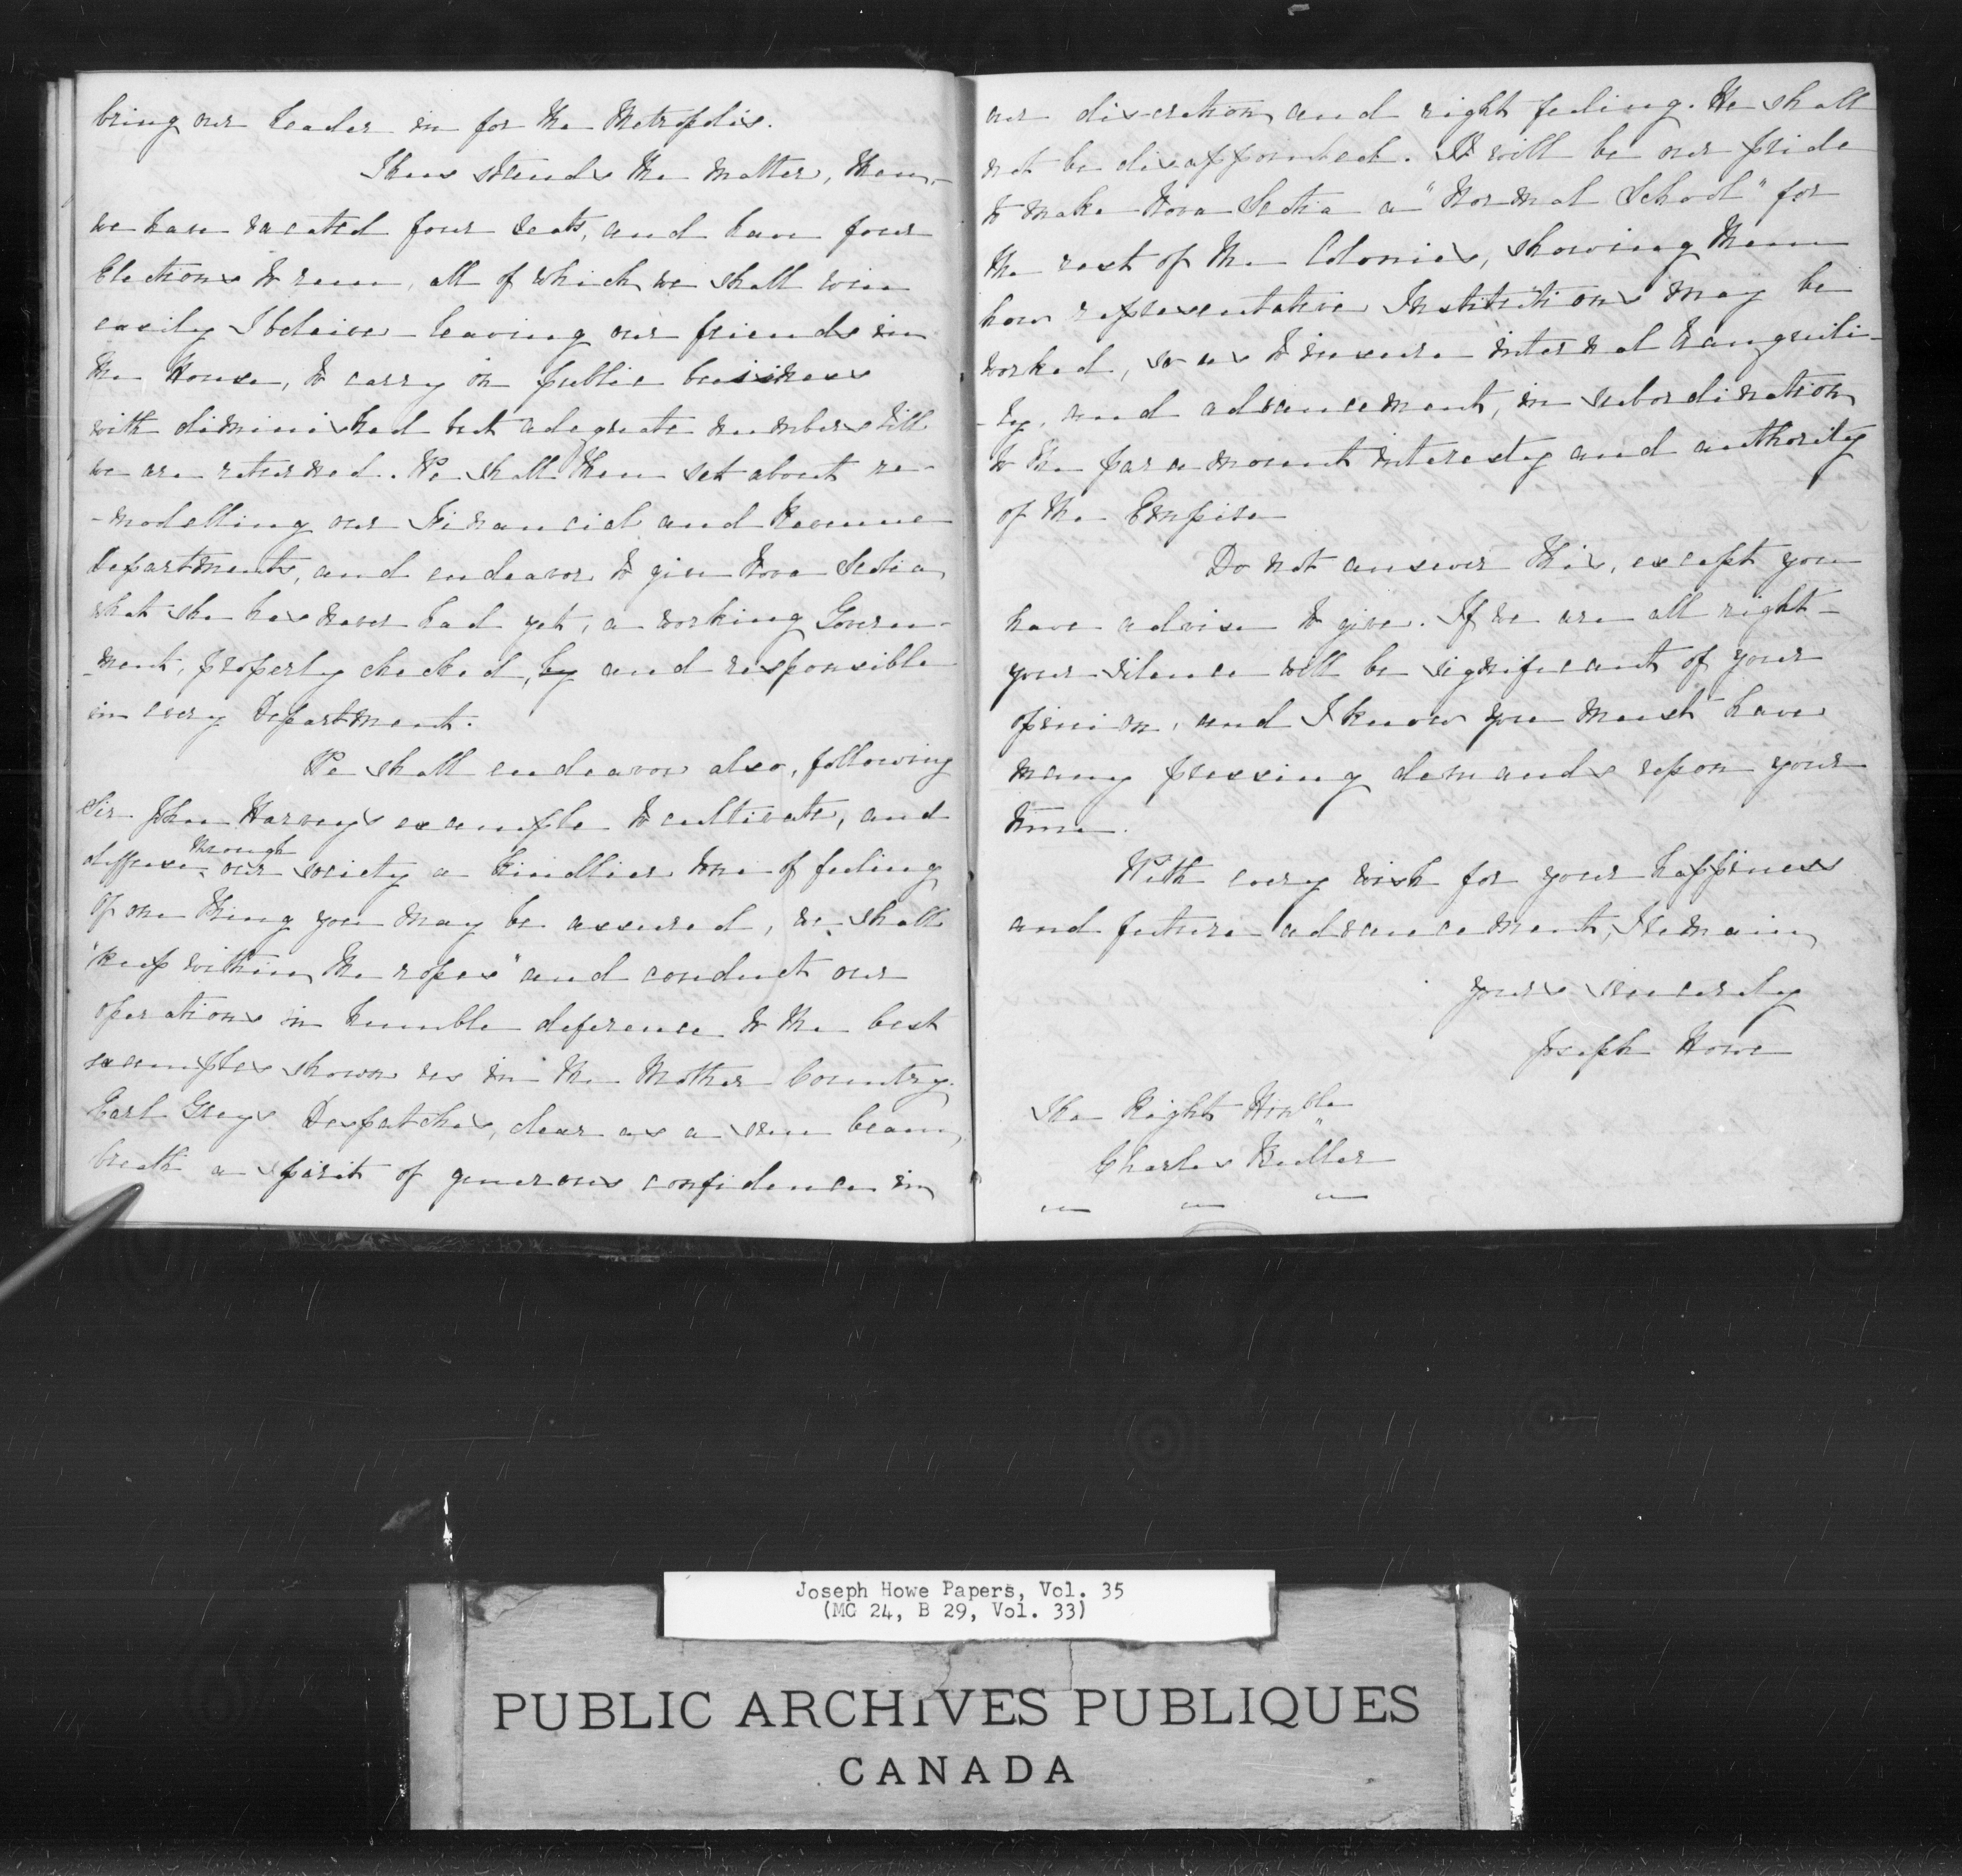 bring our Leader in for the Metropolis.
Thus stands the matter, then,-
we have vacated four seats, and have four
Elections to run, all of which we shall win
easily I beleive - leaving our friends in
the House, to carry on public business
with diminished but adequate numbers till
we are returned. We shall then set about re-
-modelling our Financial and Revenue
Departments, and endeavor to give Nova Scotia,
what she has never had yet, a working Govern-
-ment, properly checked, by and responsible
in every Department.
We shall endeavor also, following
Sir John Harvey's example to cultivate, and
diffuse through our society a kindlier tone of feeling
Of one thing you may be assured, we shall
"keep within the ropes" and conduct our
operations in humble deference to the best
examples shown us in the Mother Country.
Earl Grey's Despatches, clear as a sun beam,
breath a spirit of generous confidence in
our discretion and right feeling. He shall
not be disappointed. It will be our pride
to make Nova Scotia a "Normal School" for
the rest of the Colonies, showing them
how representative Institutions may be
worked, so as to insure internal tranquili-
-ty, and advancement, in subordination
to the paramount interests and authority
of the Empire
Do not answer this, except you
have advise to give. If we are all right -
your silence will be significant of your
opinion, and I know you must have
many pressing demands upon your
time.
With every wish for your happiness
and future advancement, I remain
yours sincerely
Joseph Howe
The Right Honble
Charles Buller
Joseph Howe Papers, Vol. 35
(MG 24, B 29, Vol. 33)
PUBLIC ARCHIVES PUBLIQUES
CANADA